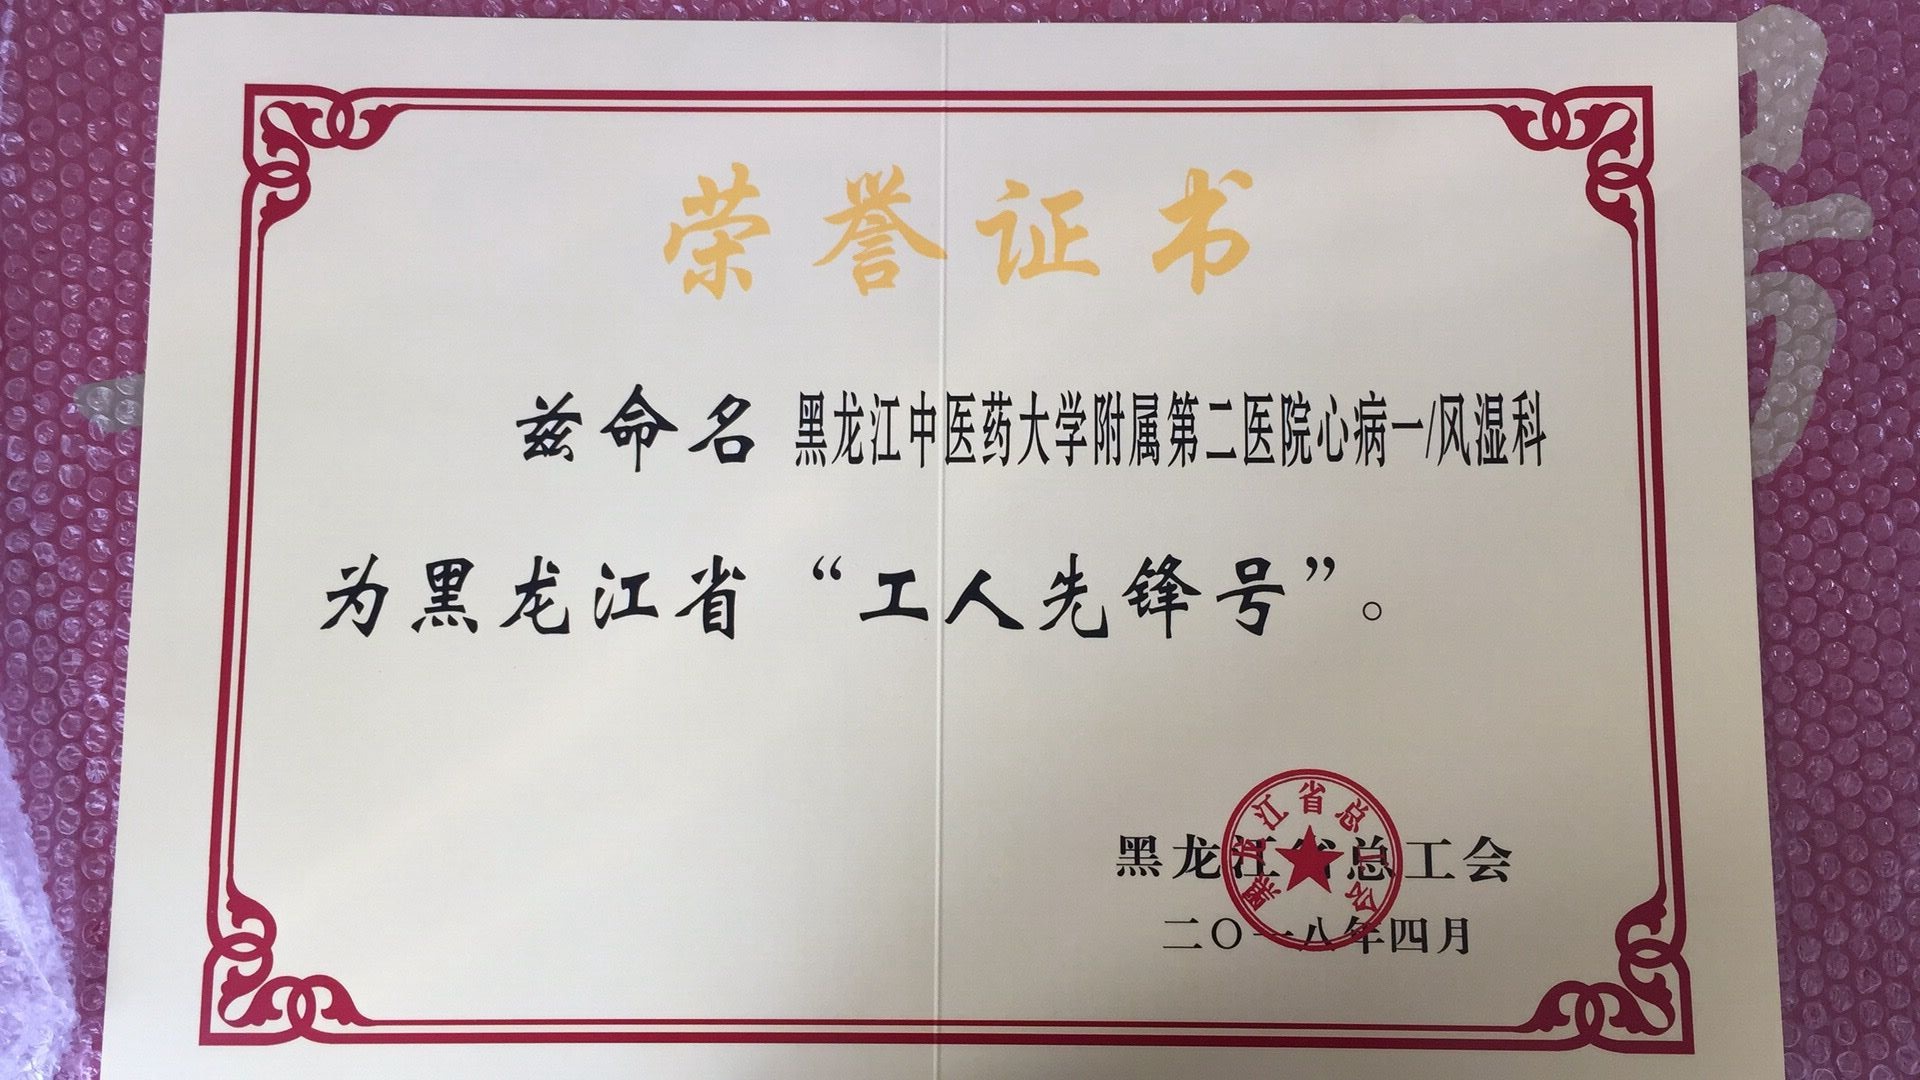 荣誉证书
兹命名 黑龙江中医药大学附属第二医院心病一/风湿科
为黑龙江省“工人先锋号”。
黑龙江省总工会
二〇一八年四月
黑龙江省总工会